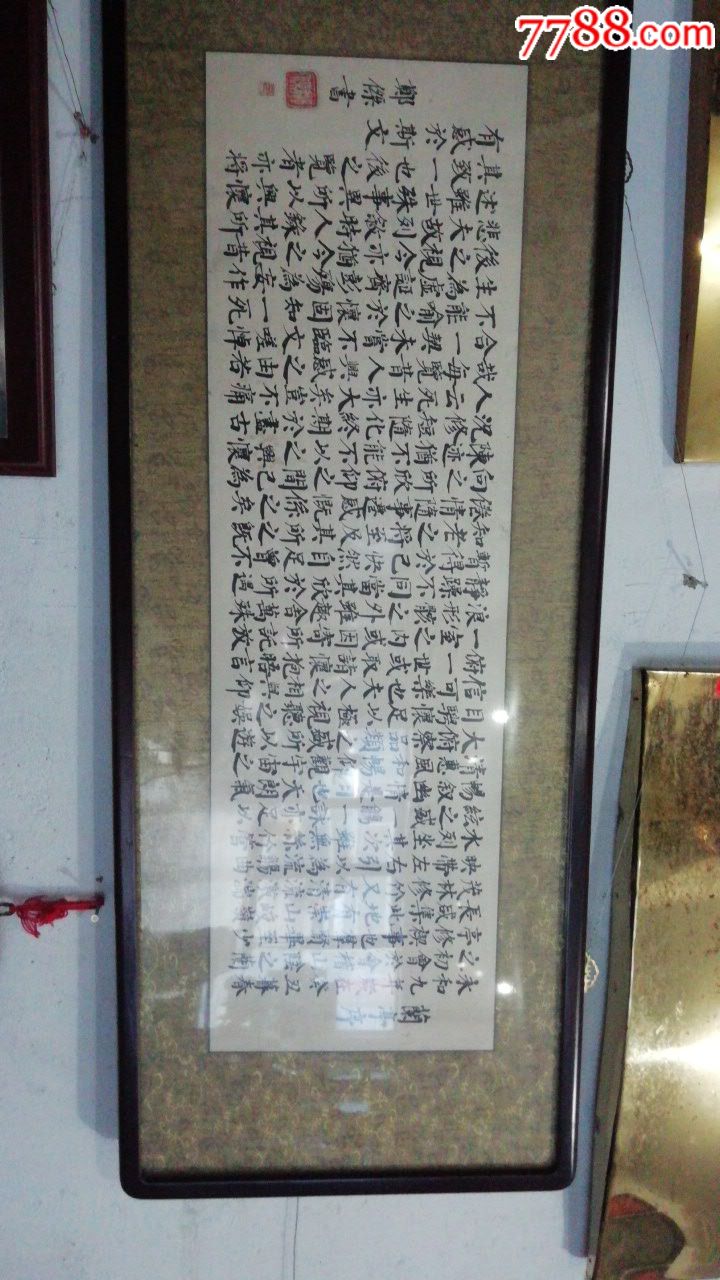 蘭亭序
永和九年歲在癸丑暮春
之初會於會稽山陰之蘭
亭修禊事也群賢畢至少
長咸集此地有崇山峻領
茂林修竹又有清流激湍
映帶左右引以為流觴曲
水列坐其次雖無絲竹管
絃之盛一觴一詠亦足以
暢敘幽情是日也天朗氣
清惠風和暢仰觀宇宙之
大俯察品類之盛所以遊
目騁懷足以極視聽之娛
信可樂也夫人之相與俯
仰一世或取諸懷抱晤言
一室之內或因寄所託放
浪形骸之外雖趣舍萬殊
靜躁不同當其欣於所遇
暫得於己快然自足曾不
知老之將至及其所之既
惓情隨事遷感慨係之矣
向之所欣俯仰之間以為
陳迹猶不能不以之興懷
況修短隨化終期於盡古
人云死生亦大矣豈不痛
哉每覽昔人興感之由若
合一契未嘗不臨文嗟悼
不能喻之於懷固知一死
生為虛誕齊彭殤為妄作
後之視今亦由今之視昔
悲夫故列敘時人錄其所
述雖世殊事異所以興懷
其致一也後之覽者亦將
有感於斯文
鄭傑書
7788.com